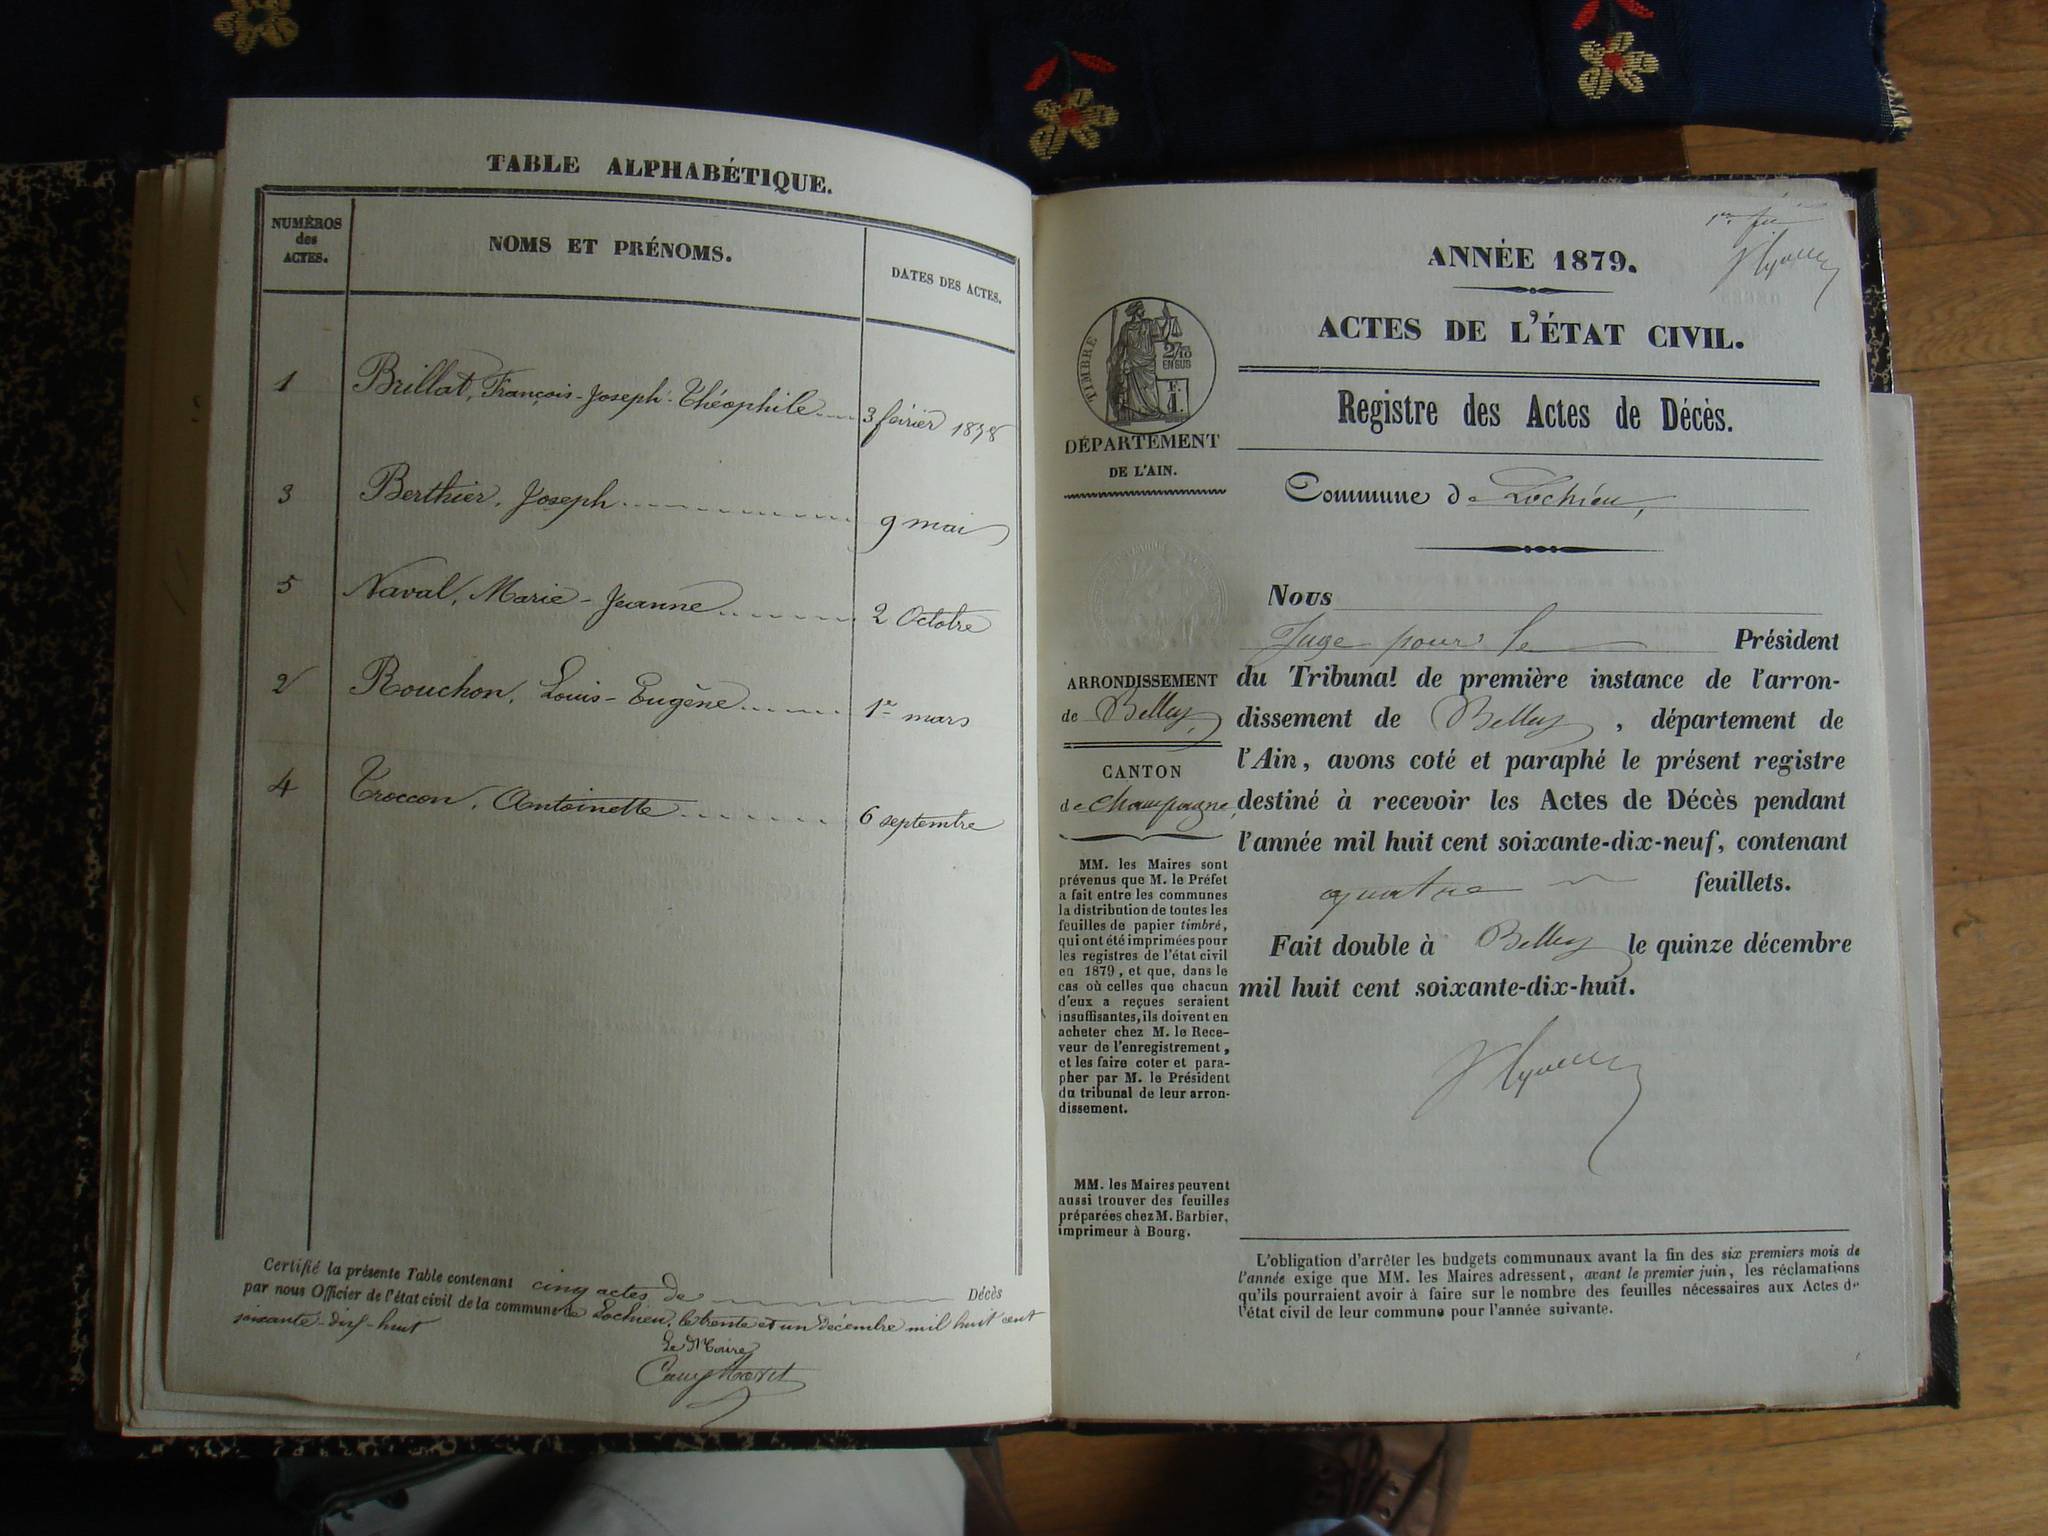 TABLE ALPHABÉTIQUE.
NUMÉROS
des
ACTES.
NOMS ET PRÉNOMS.
DATES DES ACTES.
1 Brillat, François-Joseph-Théophile 3 février 1878
3 Berthier, Joseph 9 mai
5 Naval, Marie-Jeanne 2 Octobre
2 Rouchon, Louis-Eugène 1er mars
4 Troccon, Antoinette 6 septembre
Certifié la présente Table contenant cinq actes de Décès
par nous Officier de l'état civil de la commune de Lochieu, le trente et un Décembre mil huit cent
soixante-dix-huit
Le Maire
1er
ANNÉE 1879.
ACTES DE L'ÉTAT CIVIL.
Registre des Actes de Décès.
Commune de Lochieu,
TIMBRE
2/10
EN SUS
DÉPARTEMENT
DE L'AIN.
ARRONDISSEMENT
de Belley,
CANTON
de Champagne,
MM. les Maires sont
prévenus que M. le Préfet
a fait entre les communes
la distribution de toutes les
feuilles de papier timbré,
qui ont été imprimées pour
les registres de l'état civil
en 1879, et que, dans le
cas où celles que chacun
d'eux a reçues seraient
insuffisantes, ils doivent en
acheter chez M. le Rece-
veur de l'enregistrement,
et les faire coter et para-
pher par M. le Président
du tribunal de leur arron-
dissement.
MM. les Maires peuvent
aussi trouver des feuilles
préparées chez M. Barbier,
imprimeur à Bourg.
Nous
Juge pour le Président
du Tribunal de première instance de l'arron-
dissement de Belley, département de
l'Ain, avons coté et paraphé le présent registre
destiné à recevoir les Actes de Décès pendant
l'année mil huit cent soixante-dix-neuf, contenant
quatre feuillets.
Fait double à Belley le quinze décembre
mil huit cent soixante-dix-huit.
L'obligation d'arrêter les budgets communaux avant la fin des six premiers mois de
l'année exige que MM. les Maires adressent, avant le premier juin, les réclamations
qu'ils pourraient avoir à faire sur le nombre des feuilles nécessaires aux Actes de
l'état civil de leur commune pour l'année suivante.